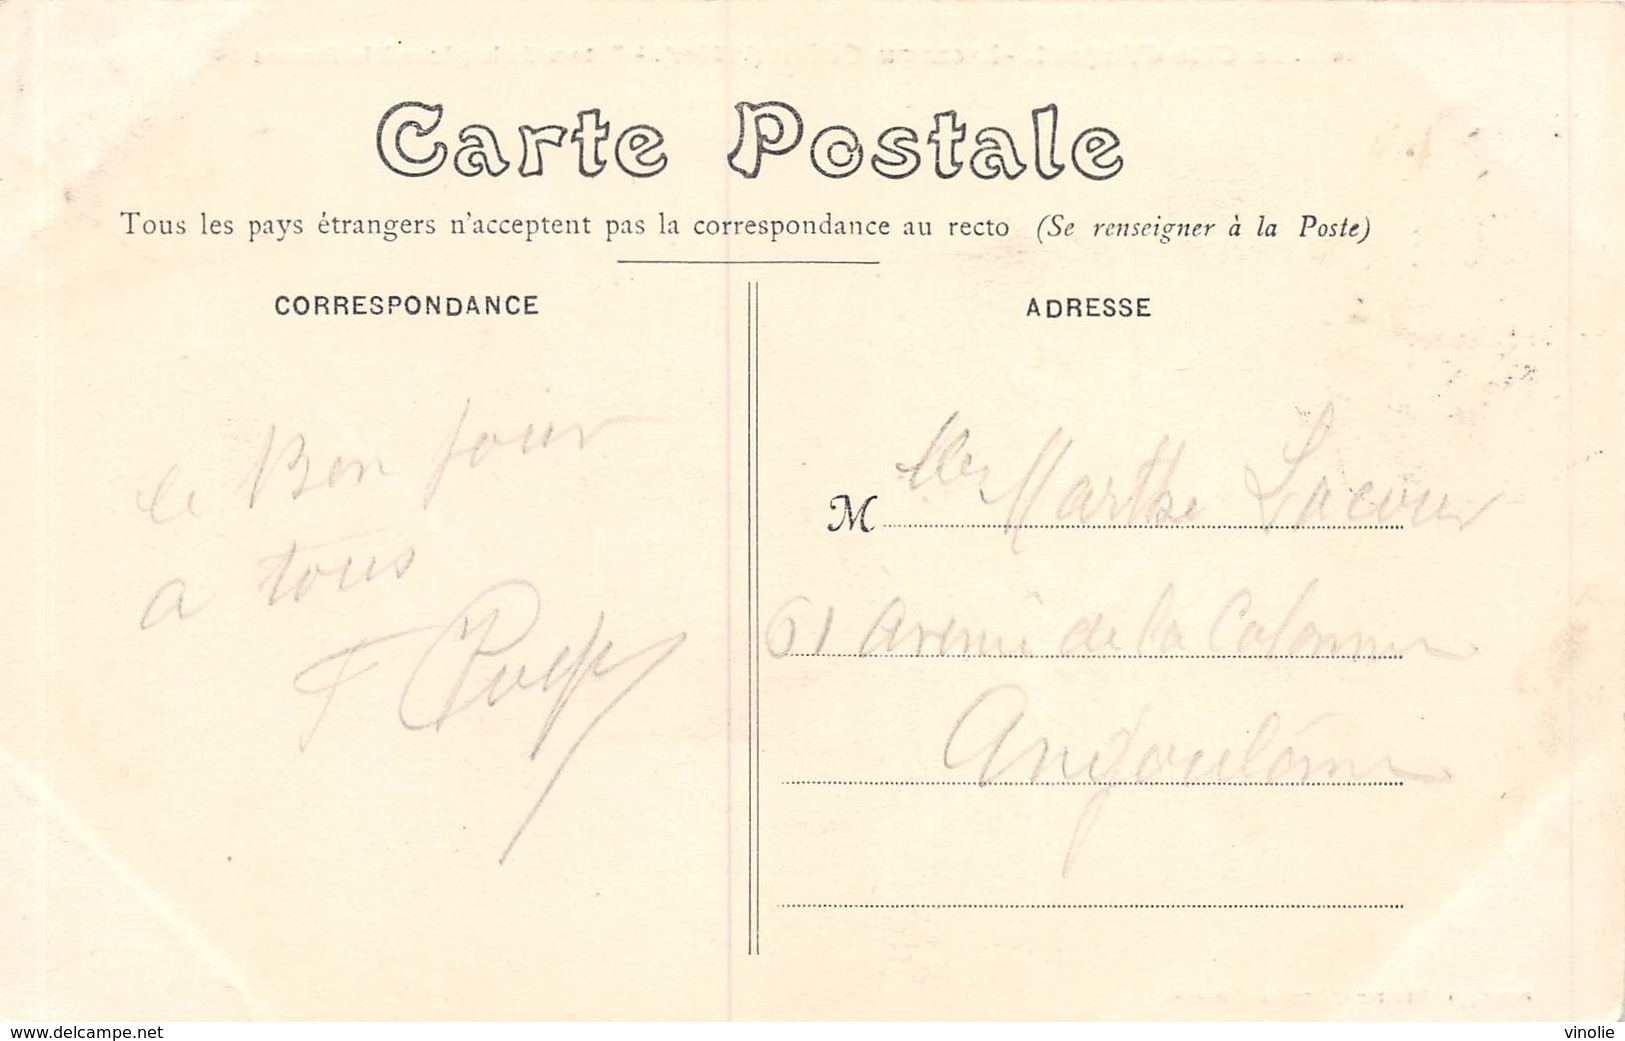 Carte Postale
Tous les pays étrangers n'acceptent pas la correspondance au recto (Se renseigner à la Poste)
CORRESPONDANCE
le Bonjour
a tous
ADRESSE
M Marthe Lacour
61 Avenue de la Colonne
Angoulême
www.delcampe.net
vinolie